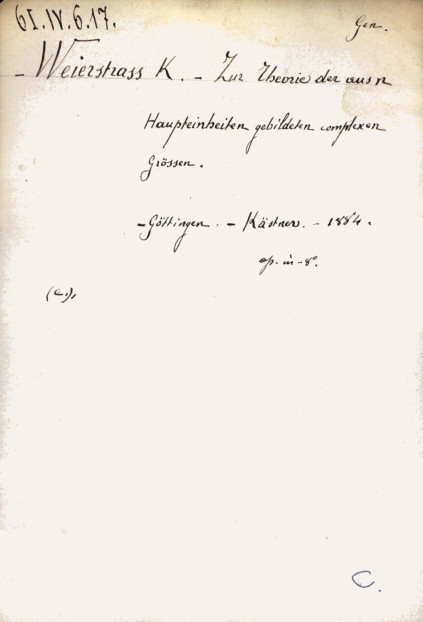 61.IV.6.17.
Gen.
- Weierstrass K. - Zur Theorie der aus n
Haupteinheiten gebildeten complexen
Grössen.
- Göttingen. - Kästner. - 1884.
op. in-8°.
(c.),
C.